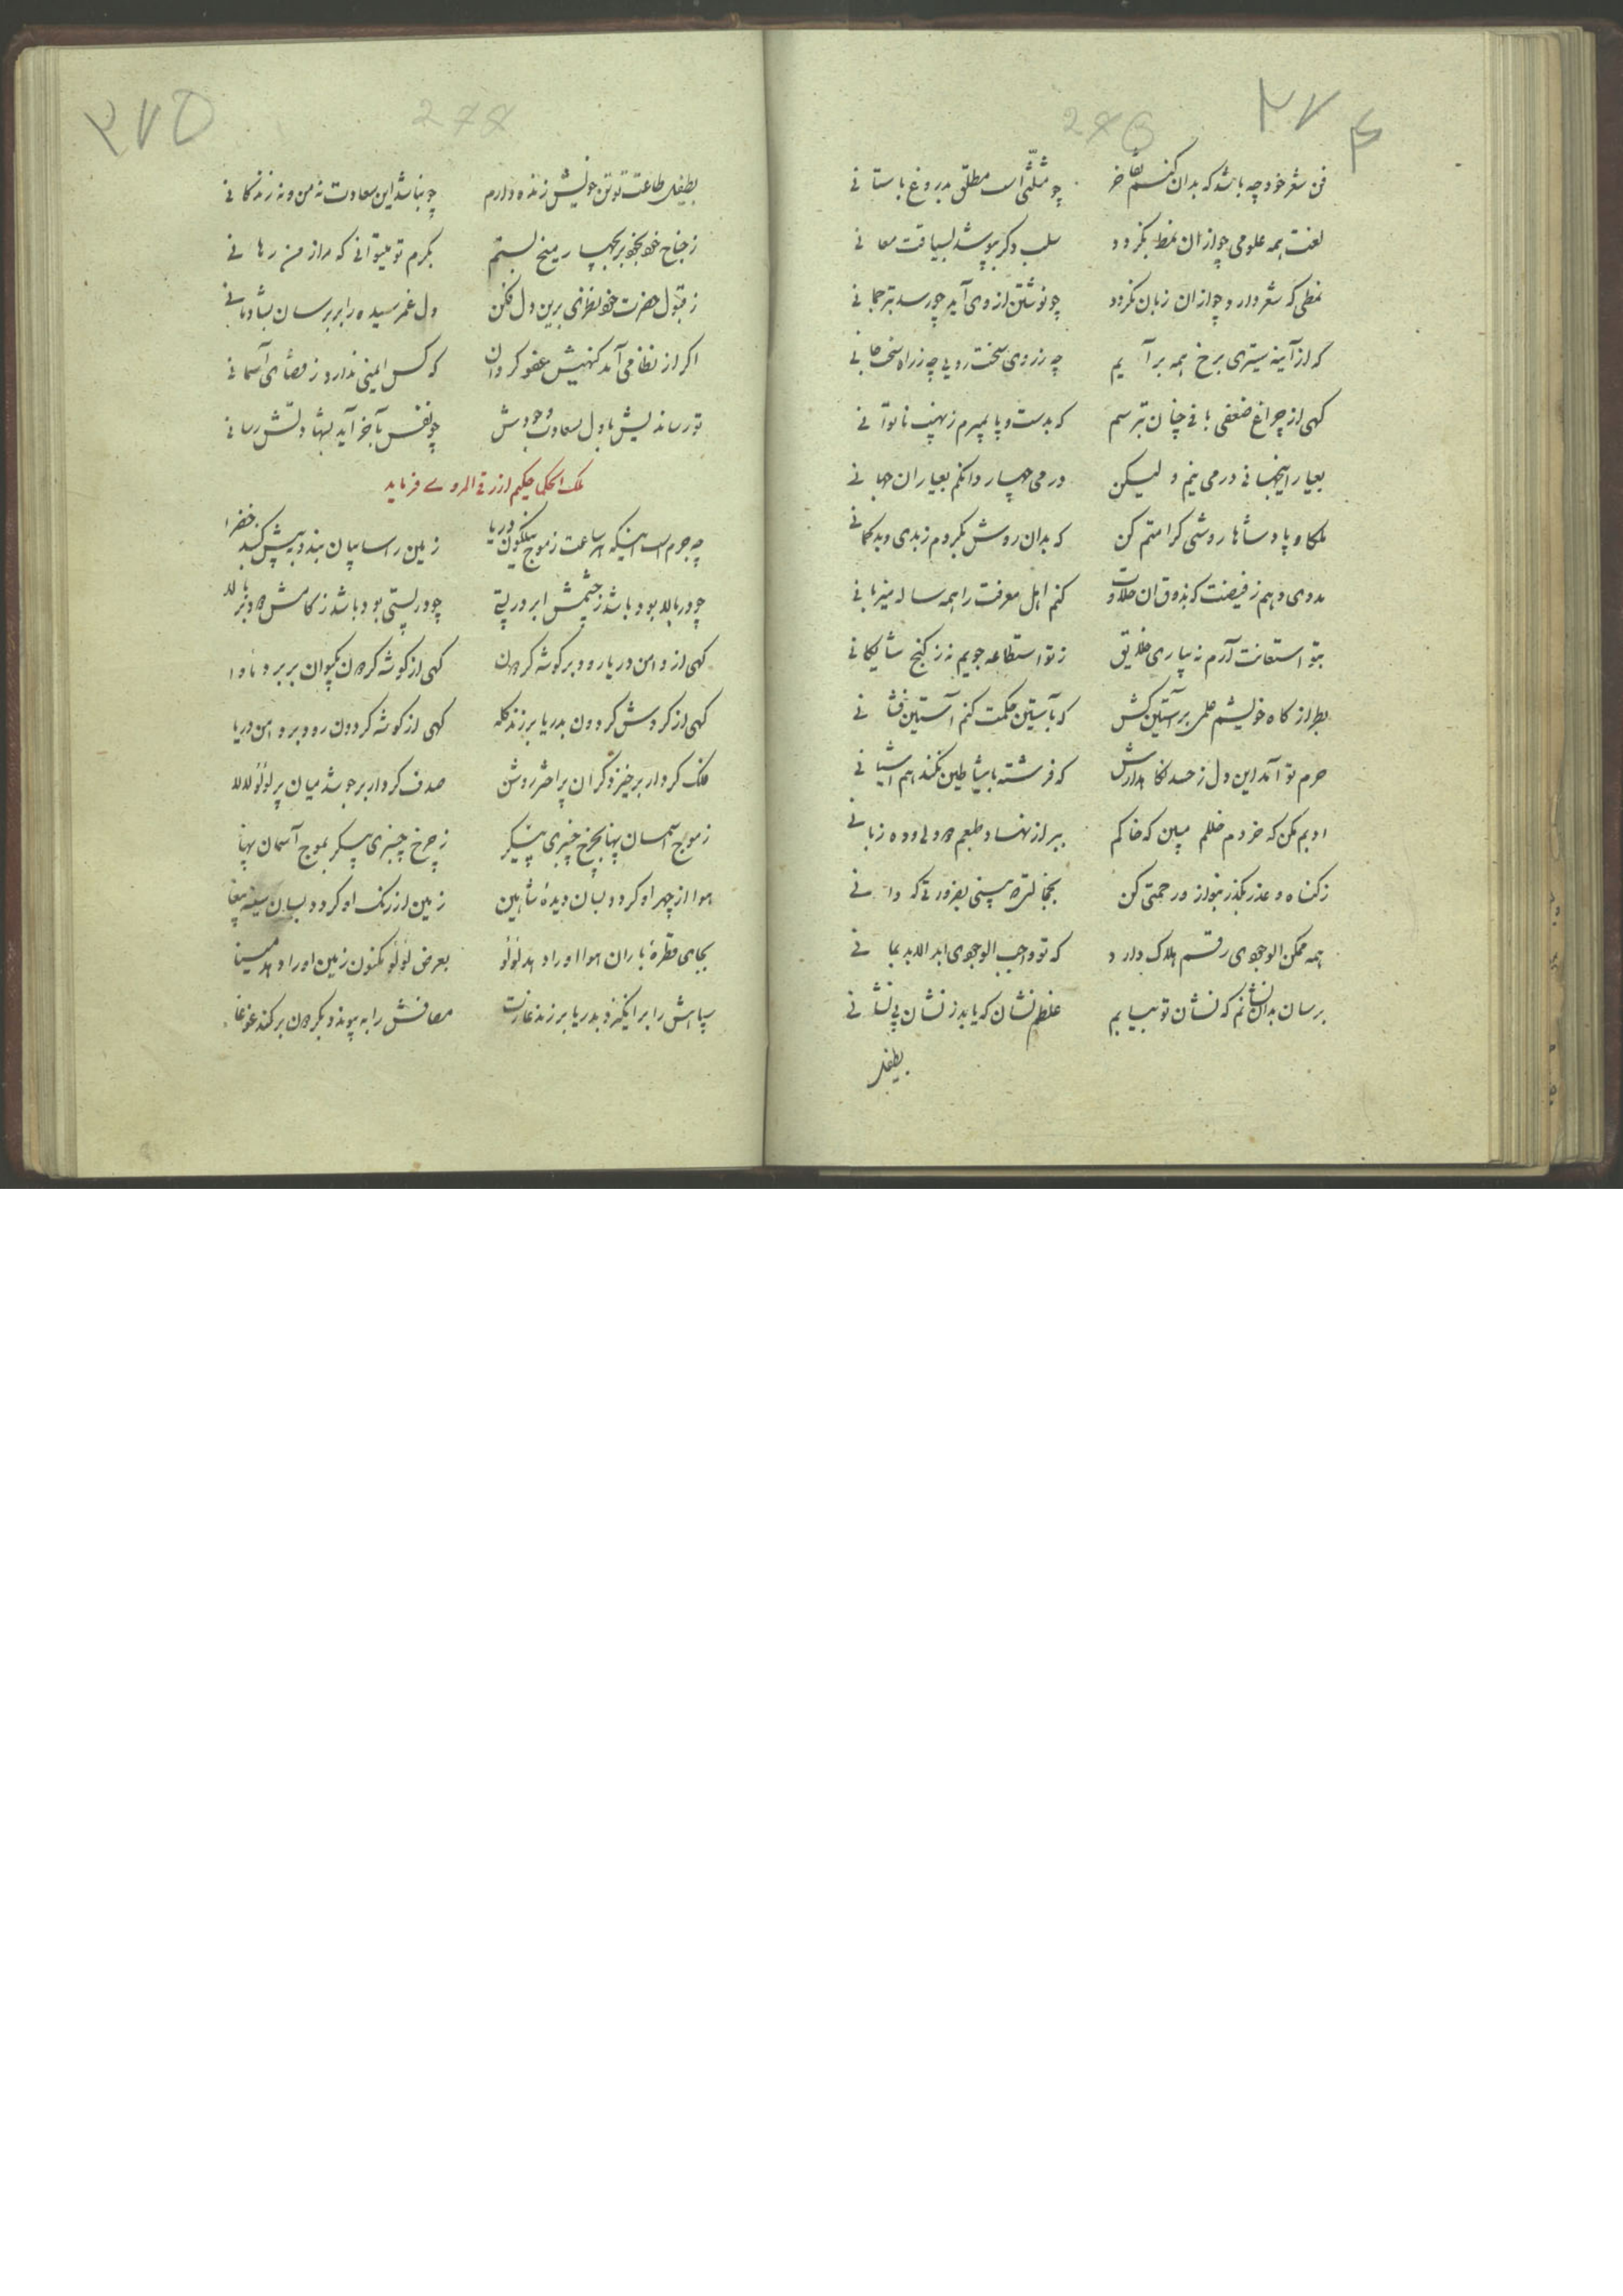 ۲۷۴
276
فن شعر خود چه باشد که بدان کنم تفاخر چو مثلثی است مطلق بدروغ باستانی
لغت همه علومی چو از ان نمط بگردد سلب دگر بپوشد لسیاقت معانی
نمطی که شعر دارد چو از ان زبان بگردد چو نوشتن از وی آمد چو رسد بترجمانی
که از آینه ستیزی برخ همه برآیم چه زروی سخت رویی چه ز راه سخت جانی
گهی از چراغ ضعفی بافی چنان بترسم که بدست و پا بمیرم ز نهیب ناتوانی
بعیار اینجهانی درمی نیم ولیکن درمی چهار دانگم بعیار ان جهانی
ملکا و پادشاها روشی کرامتم کن که بدان روش بگردم ز بدی و بدگمانی
مددی دهم ز فیضت که بذوق ان حلاوت کنم اهل معرفت را همه ساله میزبانی
بتو استعانت آرم نه بیاری خلایق ز تو استطاعه جویم نه ز گنج شایگانی
بطراز کاه خویشم علمی بر آستین کش که بآستین حکمت کنم آستین فشانی
حرم تو آمد این دل ز حسد نگاهدارش که فرشته باشیاطین نکند هم آشیانی
ادبم مکن که خردم خللم مبین که خاکم ببر از نهاد طبعم دو دلی و ده زبانی
ز گناه و عذر بگذر بنواز و رحمتی کن بخجالتی که بینی بضرورتی که دانی
همه ممکن الوجودی رقم هلاک دارد که تو واجب الوجودی ابد الابد بمانی
برسان بدان نشانم که نشان تو بیابم غلطم نشان که یابد ز نشان بی نشانی
بطفیل
۲۷۵
277
بطفیل طاعت تو تن خویش زنده دارم چو نباشد این سعادت نه من و نه زندگانی
ز جناح خود بخود بر بچهار میخ بستم بکرم تو میتوانی که مرا ز من رهانی
ز قبول حضرت خود نظری برین دل فکن دل غم رسیده را بر برسان بشادمانی
اگر از نظامی آمد گنهیش عفو گردان که کس ایمنی ندارد ز قضای آسمانی
تو رساندیش باول بسعادت وجودش چو نفس بآخر آید بشهادتش رسانی
ملک الحکما حکیم ازرقی الهروی فرماید
چه جرم است اینکه هر ساعت ز موج نیلگون دریا زمین را سایبان بندد بپیش گنبد خضرا
چو در بالا بود باشد ز چشمش ابر در پستی چو در پستی بود باشد ز کامش دود بر بالا
گهی از دامن دریا رود بر گوشه گردون گهی از گوشه گردون بکیوان بر برد ماوا
گهی از گردش گردون بدریا برزند کله گهی از گوشه گردون رود بر دامن دریا
فلک کردار برخیزد کران پر اختر روشن صدف کردار برجوشد میان پر لؤلؤ لالا
ز موج آسمان پهنا بچرخ چنبری پیکر ز چرخ چنبری پیکر بموج آسمان پهنا
هوا از چهر او گردد بسان دیده شاهین زمین از رنگ او گردد بسان سینه ببغا
بجای قطره باران هوا او را دهد لؤلؤ بعرض لؤلؤ مکنون زمین او را دهد مینا
سپاهش را برانگیزد بدریا بر زند غارت مصافش را به پیوندد بگردون برکند غوغا